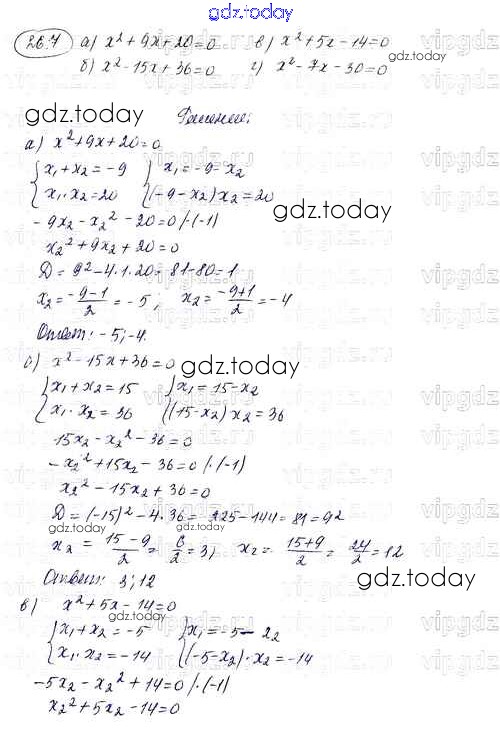 gdz.today
26.7 а) x² + 9x + 20 = 0 в) x² + 5x - 14 = 0
б) x² - 15x + 36 = 0 г) x² - 7x - 30 = 0
gdz.today
Решение:
а) x² + 9x + 20 = 0
{ x₁ + x₂ = -9 { x₁ = -9 - x₂
{ x₁ · x₂ = 20 { (-9 - x₂) x₂ = 20
gdz.today
-9x₂ - x₂² - 20 = 0 /·(-1)
x₂² + 9x₂ + 20 = 0
D = 9² - 4·1·20 = 81 - 80 = 1
x₂ = (-9-1)/2 = -5, x₂ = (-9+1)/2 = -4
Ответ: -5; -4.
б) x² - 15x + 36 = 0
gdz.today
{ x₁ + x₂ = 15 { x₁ = 15 - x₂
{ x₁ · x₂ = 36 { (15 - x₂) x₂ = 36
15x₂ - x₂² - 36 = 0
-x₂² + 15x₂ - 36 = 0 /·(-1)
x₂² - 15x₂ + 36 = 0
D = (-15)² - 4·36 = 225 - 144 = 81 = 9²
gdz.today
x₂ = (15-9)/2 = 6/2 = 3, x₂ = (15+9)/2 = 24/2 = 12
Ответ: 3; 12
gdz.today
в) x² + 5x - 14 = 0
gdz.today
{ x₁ + x₂ = -5 { x₁ = -5 - x₂
{ x₁ · x₂ = -14 { (-5 - x₂) · x₂ = -14
-5x₂ - x₂² + 14 = 0 /·(-1)
x₂² + 5x₂ - 14 = 0